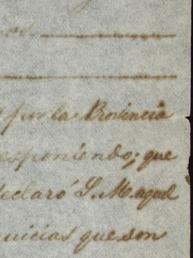 por la Provincia
esponiendo; que
declaró S. M. aquel
uicias que son